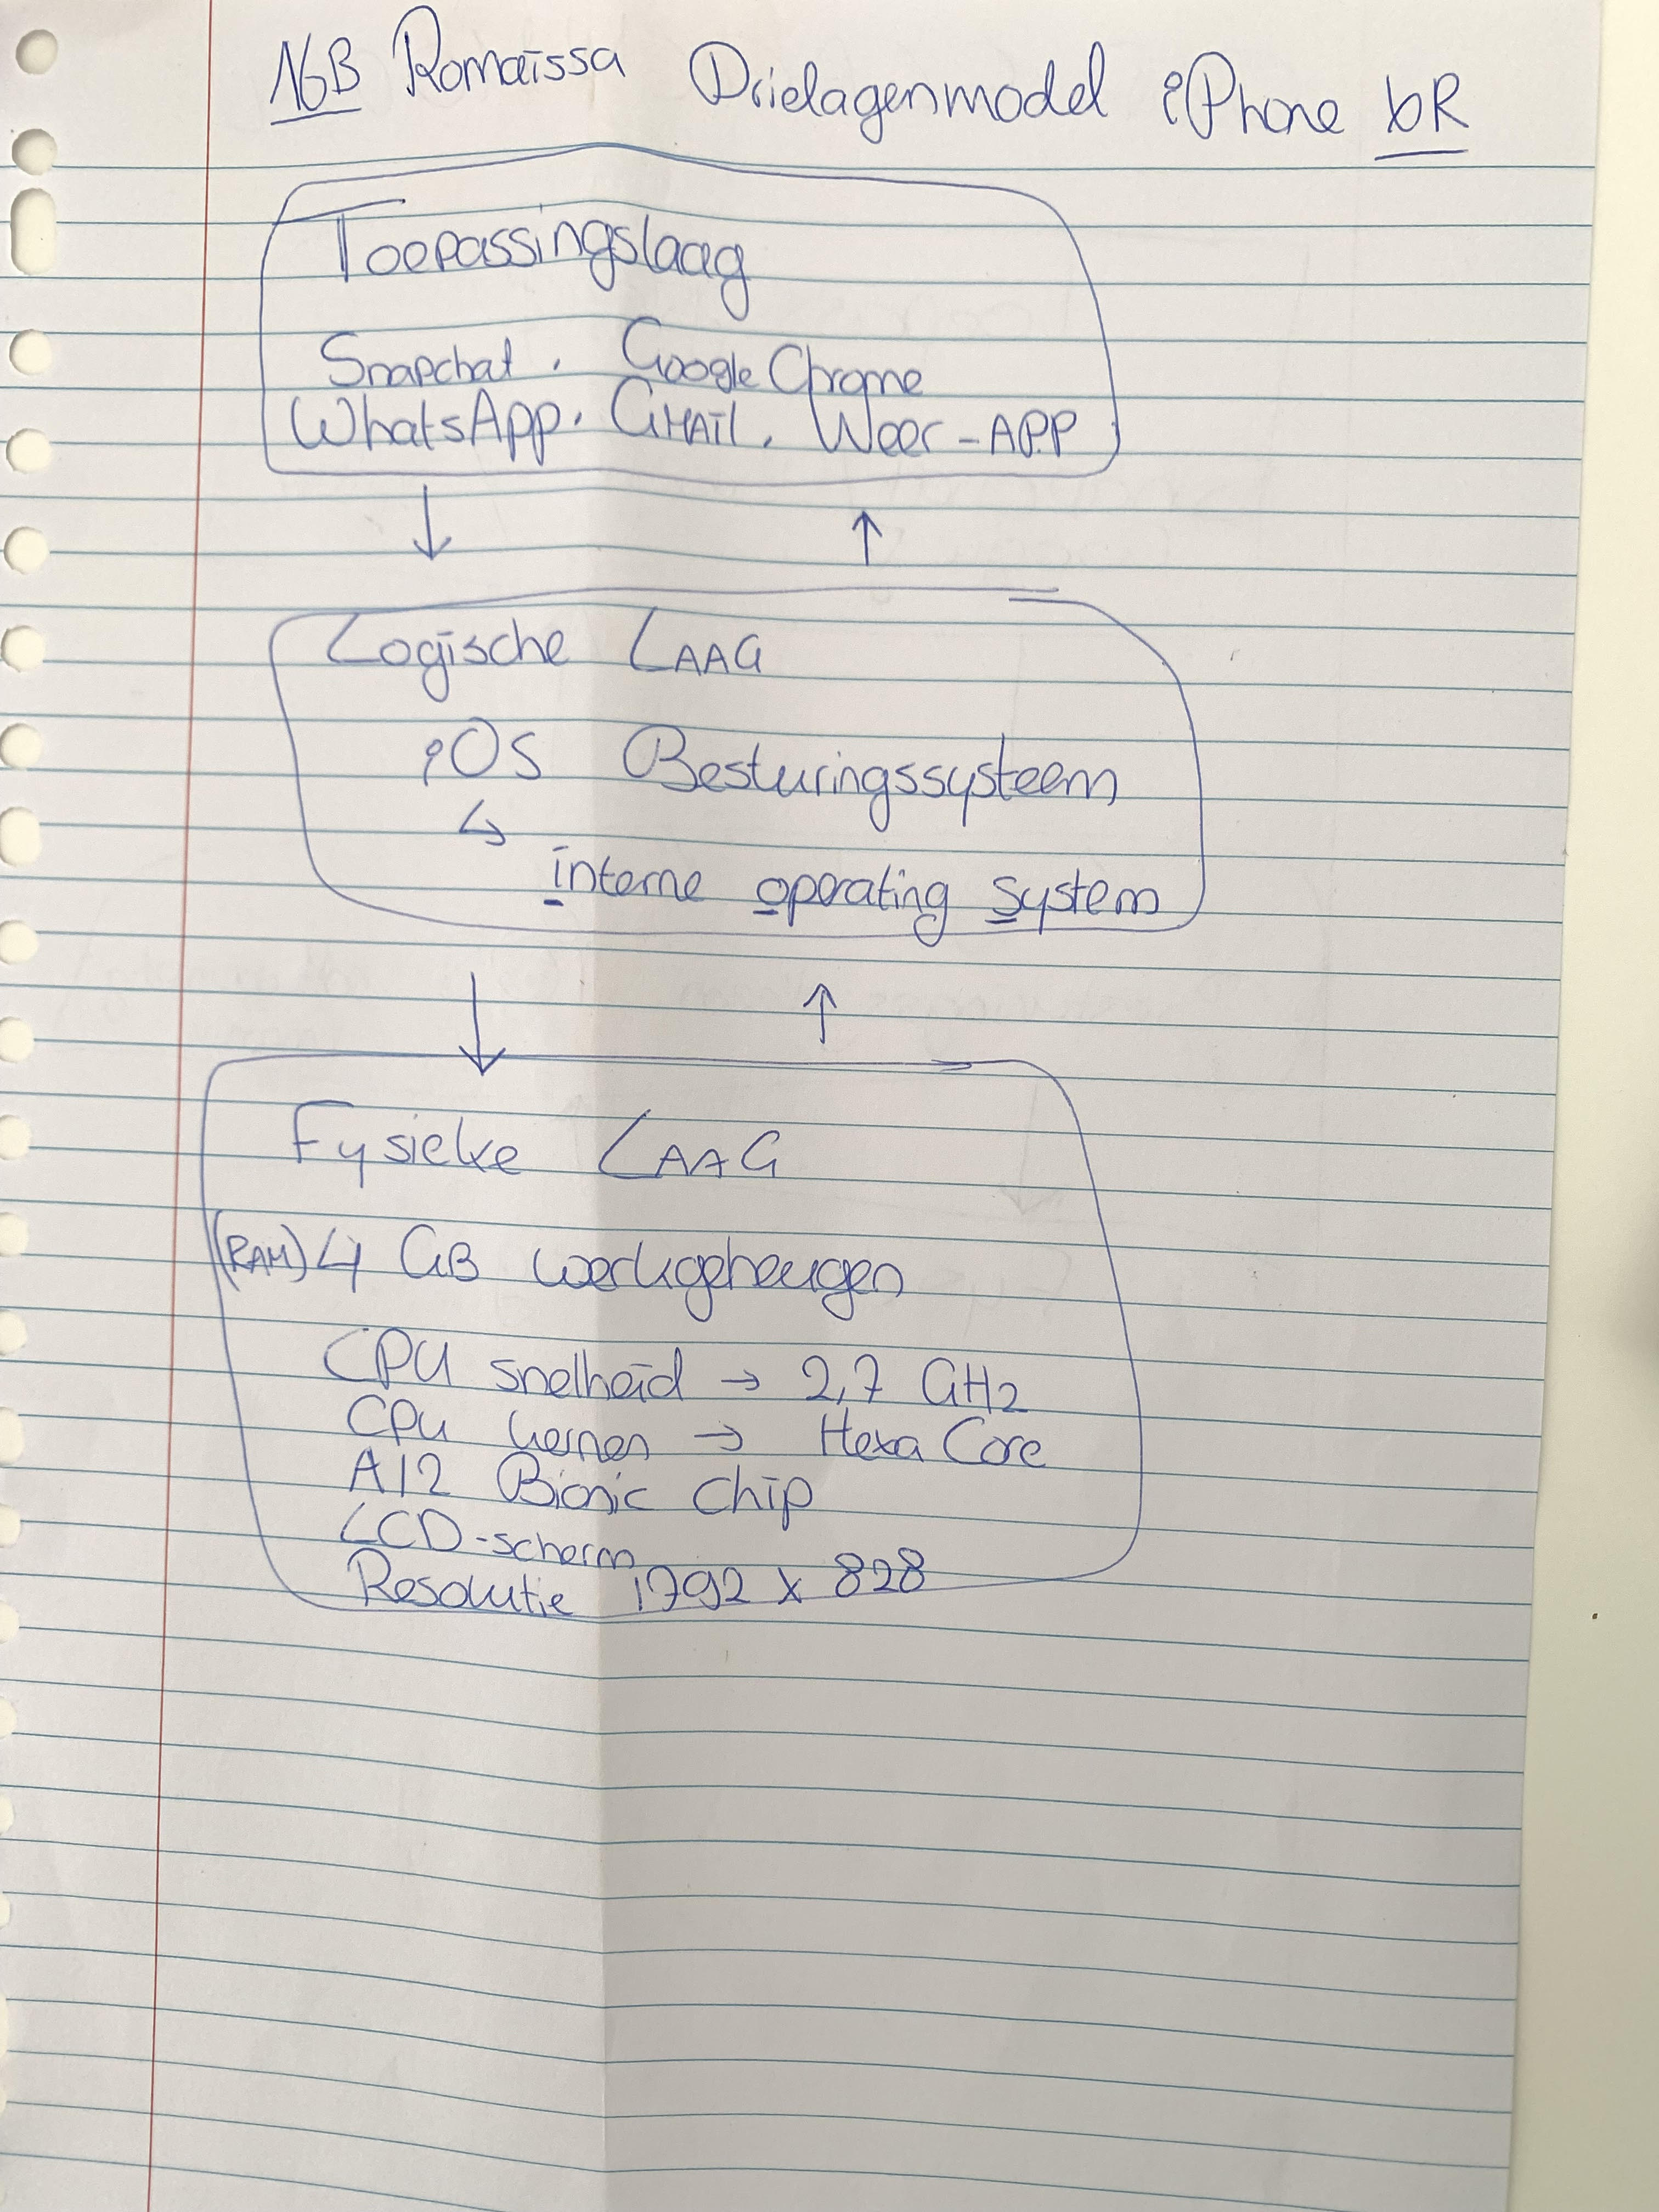 1GB Romaïssa Drielagenmodel iPhone XR
Toepassingslaag
Snapchat, Google Chrome
WhatsApp, GMAIL, Weer-APP
↓ ↑
Logische LAAG
iOS Besturingssysteem
↳
interne operating system
↓ ↑
Fysieke LAAG
(RAM) 4 GB werkgeheugen
CPU snelheid → 2,7 GHz
CPU kernen → Hexa Core
A12 Bionic Chip
LCD-scherm
Resolutie 1792 x 828